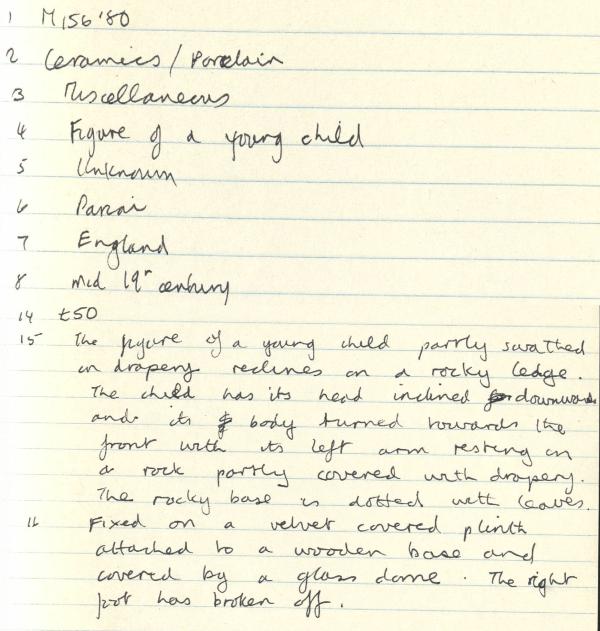 1 M156'80
2 Ceramics / Porcelain
3 Miscellaneous
4 Figure of a young child
5 Unknown
6 Parian
7 England
8 mid 19th century
14 £50
15 The figure of a young child partly swathed
in drapery reclines on a rocky ledge.
The child has its head inclined downwards
and its body turned towards the
front with its left arm resting on
a rock partly covered with drapery.
The rocky base is dotted with leaves.
16 Fixed on a velvet covered plinth
attached to a wooden base and
covered by a glass dome. The right
foot has broken off.